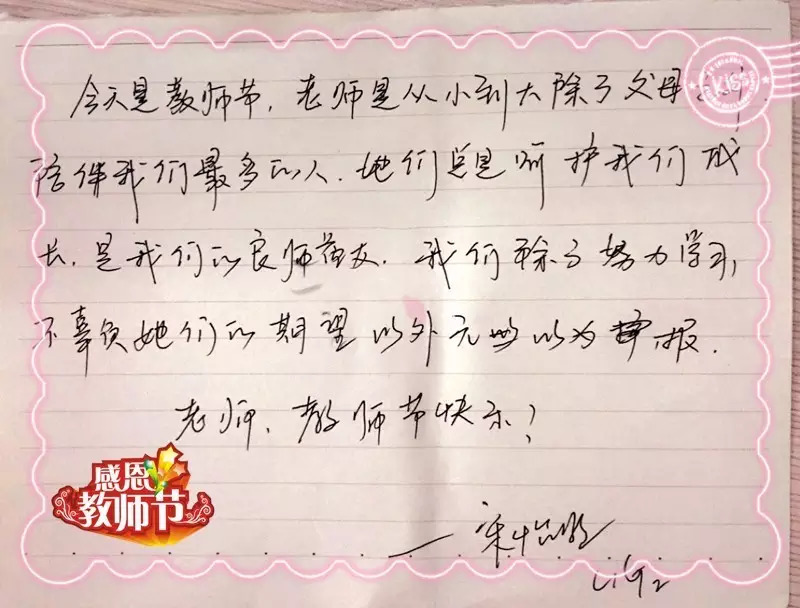 今天是教师节，老师是从小到大除了父母
陪伴我们最多的人．她们总是呵护我们成
长，是我们的良师益友．我们除了努力学习，
不辜负她们的期望以外无以为报．
老师，教师节快乐！
感恩
教师节
KISS